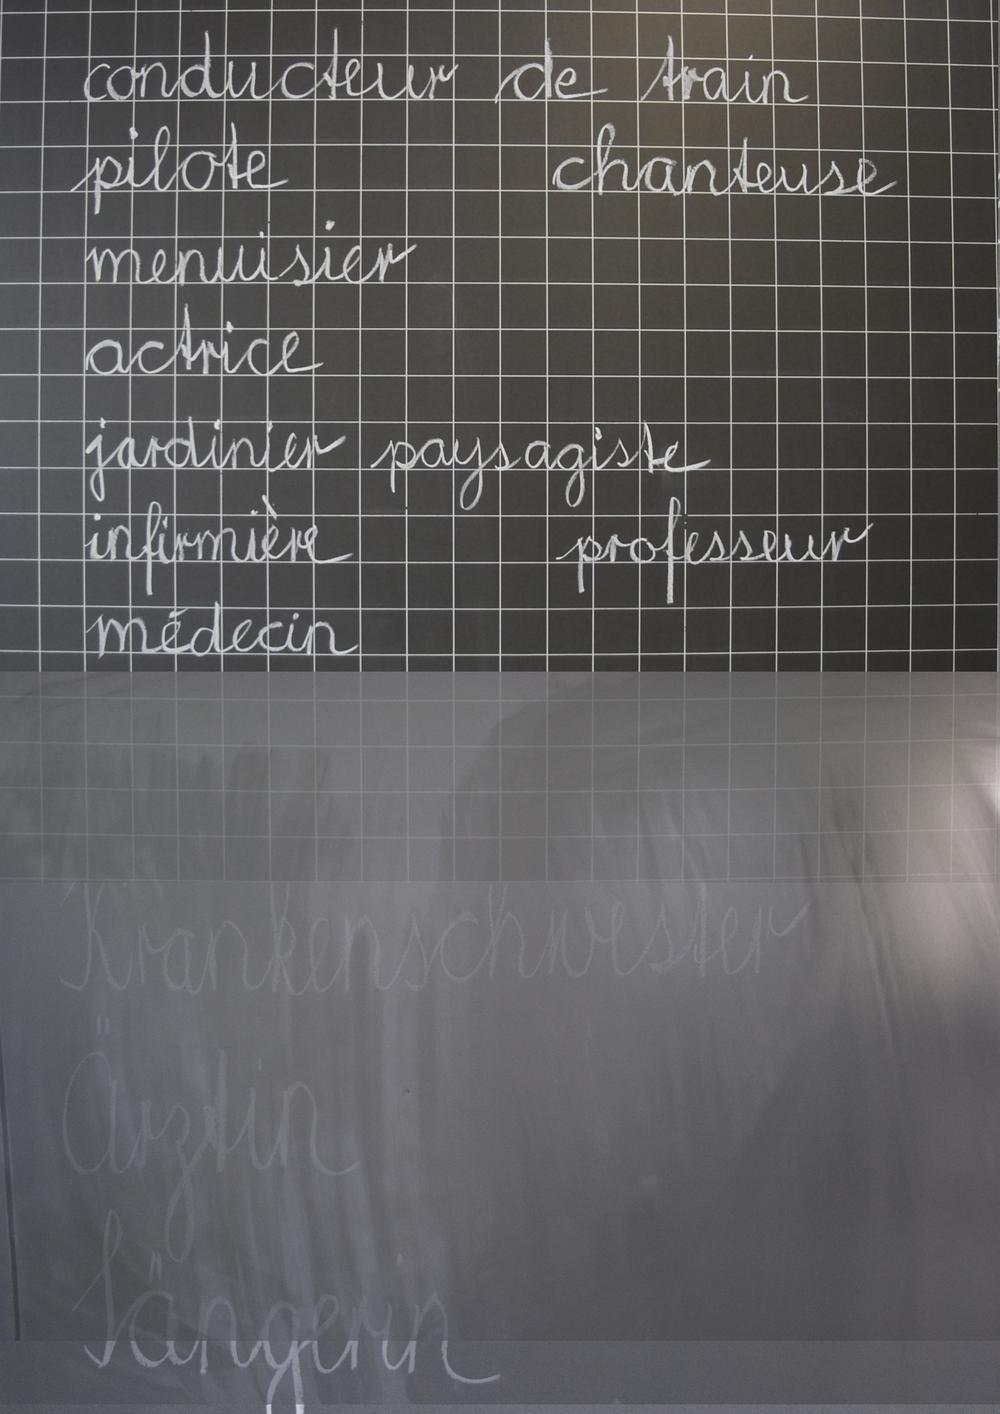 conducteur de train
pilote chanteuse
menuisier
actrice
jardinier paysagiste
infirmière professeur
médecin
Krankenschwester
Ärztin
Sängerin